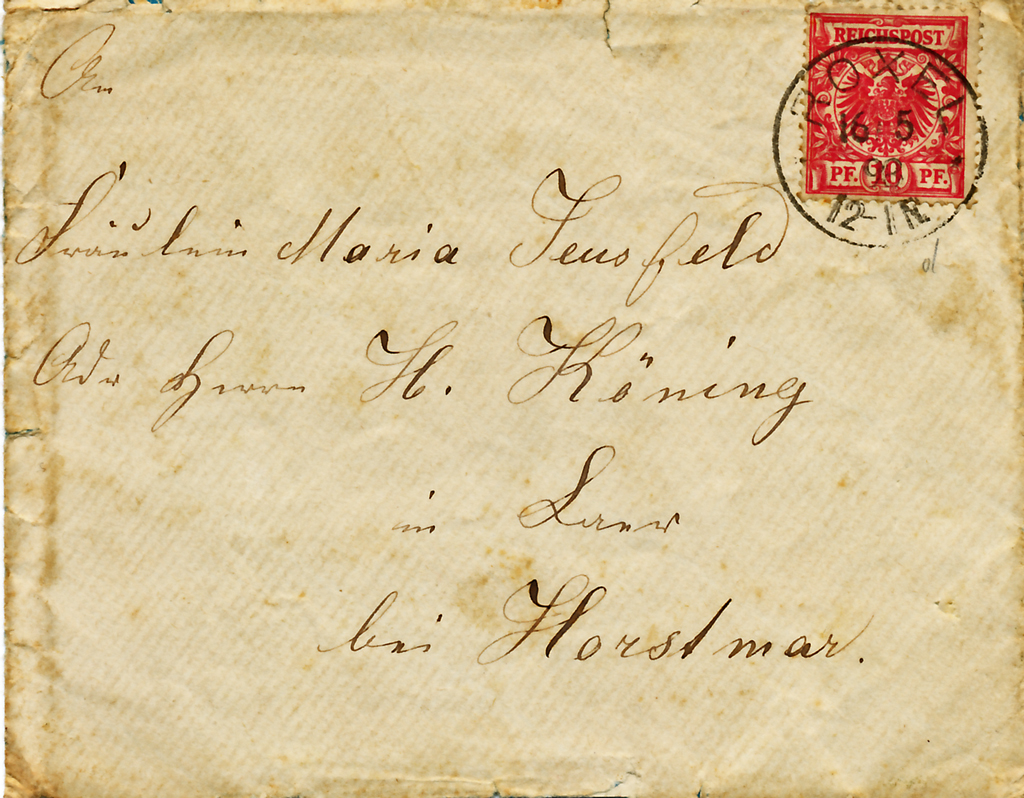 An
REICHSPOST
PF. 10 PF.
ROXEL
16 5
12-1N
Fräulein Maria Jeusfeld
Adr Herrn H. Köning
in Laer
bei Horstmar.